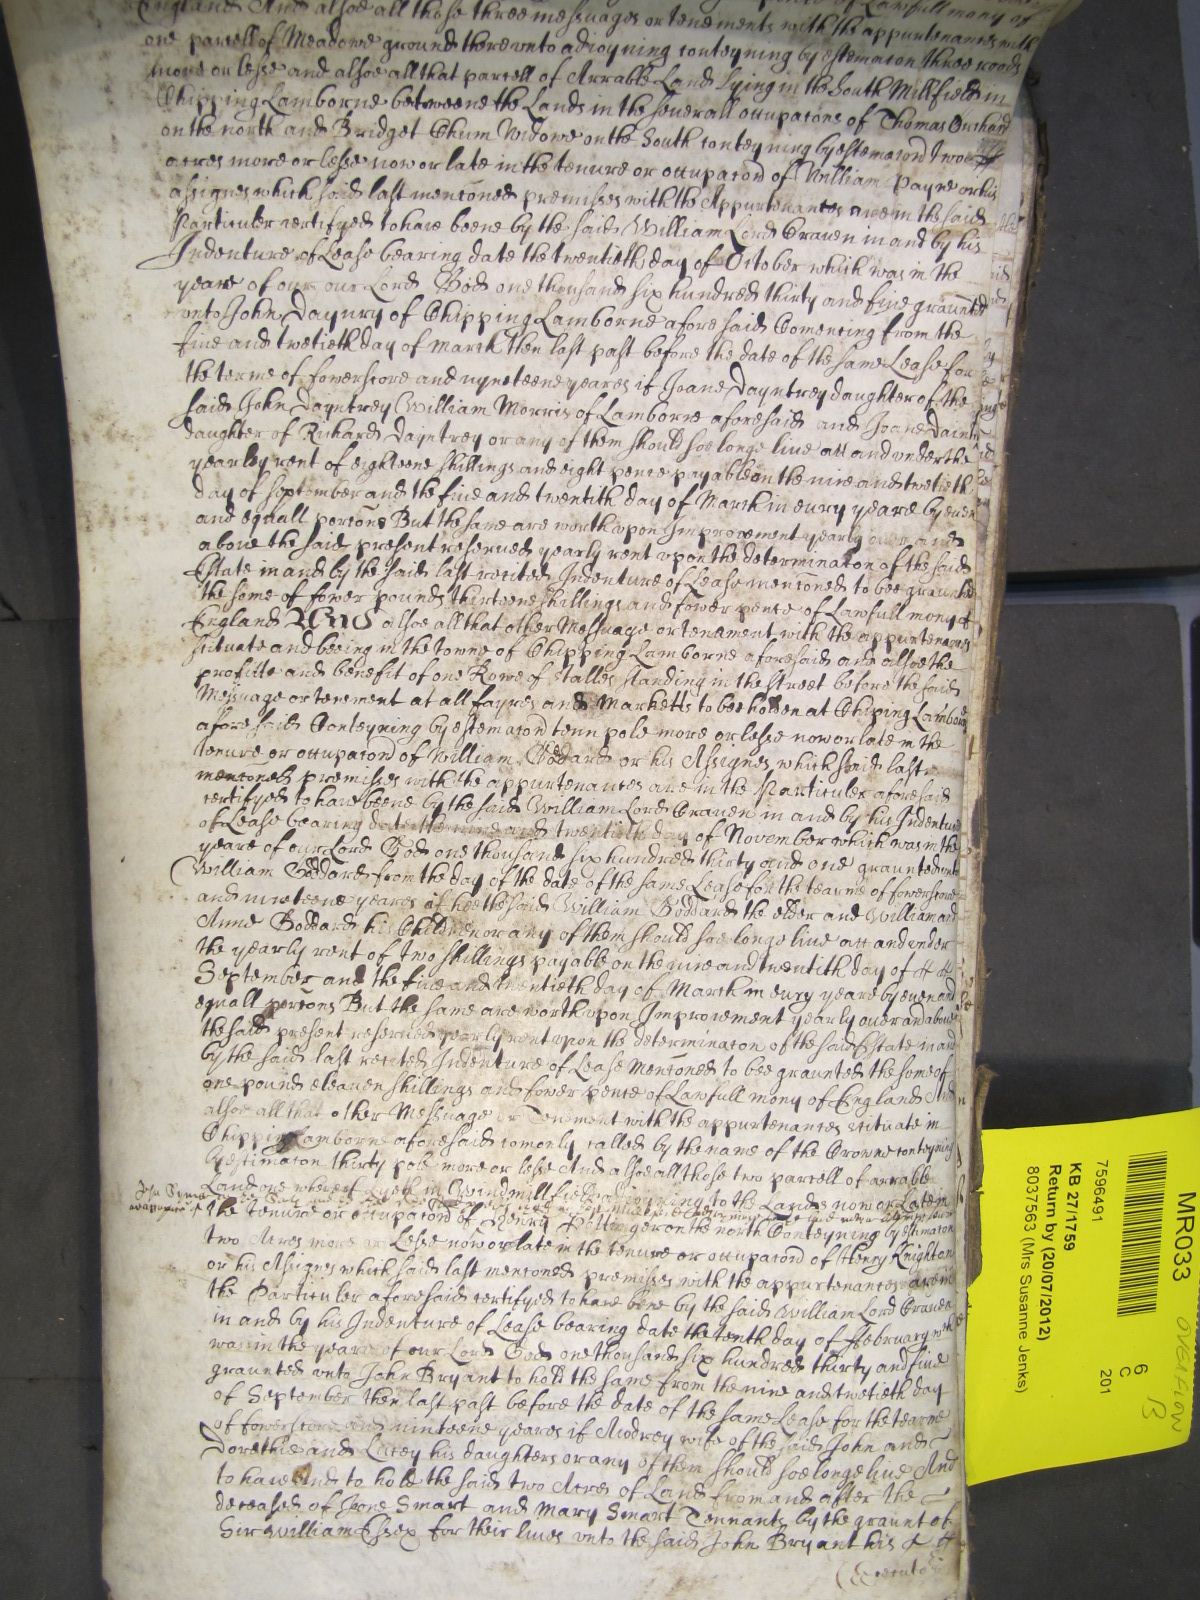 England And alsoe all those three messuages or tenements with the appurtenances with
one parcell of Meadowe ground therevnto adioyning conteyning by estemacon three roods
more or lesse and alsoe all that parcell of Arrable Land lying in the South Millfield in
Chipping Lamborne betweene the Lands in the severall occupacons of Thomas Orchard
on the north and Bridget Chum Widowe on the South conteyning by estemacon two
acres more or lesse now or late in the tenure or occupacon of William Payne or his
assignes which said last menconed premisses with the Appurtenances are in the said
Particuler certifyed to have beene by the said William Lord Craven in and by his
Indenture of Lease bearing date the twentieth day of October which was in the
yeare of our our Lord God one thousand six hundred thirty and five graunted
vnto John Dayntry of Chipping Lamborne aforesaid Comencing from the
five and twetieth day of March then last past before the date of the same Lease for
the terme of fowerscore and nyneteene yeares if Joane Dayntrey daughter of the
said John Dayntrey William Morris of Lamborne aforesaid and Joane Daint
daughter of Richard Dayntrey or any of them should soe longe live att and vnder the
yearley rent of eighteene shillings and eight pence payable on the nine and twetieth
day of September and the five and twentith day of March in eury yeare by even
and equall porcons But the same are worth vpon Improvement yearly over and
above the said present reserved yearly rent vpon the determinacon of the said
Estate in and by the said last recited Indenture of Lease menconed to bee graunted
the some of fower pounds thirteene shillings and fower pence of Lawfull mony of
England And alsoe all that other Messuage or tenament with the appurtenances
scituate and beeing in the towne of Chipping Lamborne aforesaid and alsoe the
profitte and benefit of one Rowe of stalles standing in the street before the said
Messuage or tenement at all fayres and Marketts to bee holden at Chiping Lamborne
aforesaid Conteyning by estemacon tenn pole more or lesse now or late in the
tenure or occupacon of William Goddard or his Assignes which said last
menconed premisses with the appurtenances are in the Particuler aforesaid
certifyed to have beene by the said William Lord Craven in and by his Indenture
of Lease bearing date the nine and twentieth day of November which was in the
yeare of our Lord God one thousand six hundred thirty and one graunted vnto
William Goddard from the day of the date of the same Lease for the tearme of fowerscore
and nineteene yeares if hee the said William Goddard the elder and William and
Anne Goddard his Children or any of them should soe longe live att and vnder
the yearly rent of two shillings payable on the nine and twentith day of
September and the five and twentieth day of March in eury yeare by even and
equall porcons But the same are worth vpon Improvement yearly over and above
the said present reserved yearly rent vpon the determinacon of the said Estate in and
by the said last recited Indenture of Lease menconed to bee graunted the some of
one pound eleaven shillings and fower pence of Lawfull mony of England And
alsoe all that other Messuage or Tenement with the appurtenances scituate in
Chipping Lamborne aforesaid comonly called by the name of the Crowne conteyning
by estimacon thirty pole more or lesse And alsoe all those two parcell of arrable
Land one whereof lyeth in Windmill field adioyning to the Lands now or Late in
the tenure or occupacon of Henry on the north Conteyning by estimacon
two Acres more or Lesse now or late in the tenure or occupacon of Henry Knighton
or his Assignes which said last menconed premisses with the appurtenances are in
the Particuler aforesaid certifyed to have bene by the said William Lord Craven
in and by his Indenture of Lease bearing date the tenth day of February wch
was in the yeare of our Lord God one thousand six hundred thirty and five
graunted vnto John Bryant to hold the same from the nine and twetieth day
of September then last past before the date of the same Lease for the tearme
of fowerscore and ninteene yeares if Awdrey wife of the said John and
Dorethie and Lucey his daughters or any of them should soe longe live And
to have and to hold the said two Acres of Land from and after the
deceased of Jone Smart and Mary Smart Tennants by the graunt of
Sir William Essex for their lives vnto the said John Bryant his
Executo
MR033
OVERFLOW
13
6
C
201
7596491
KB 27/1759
Return by (20/07/2012)
8037563 (Mrs Susanne Jenks)